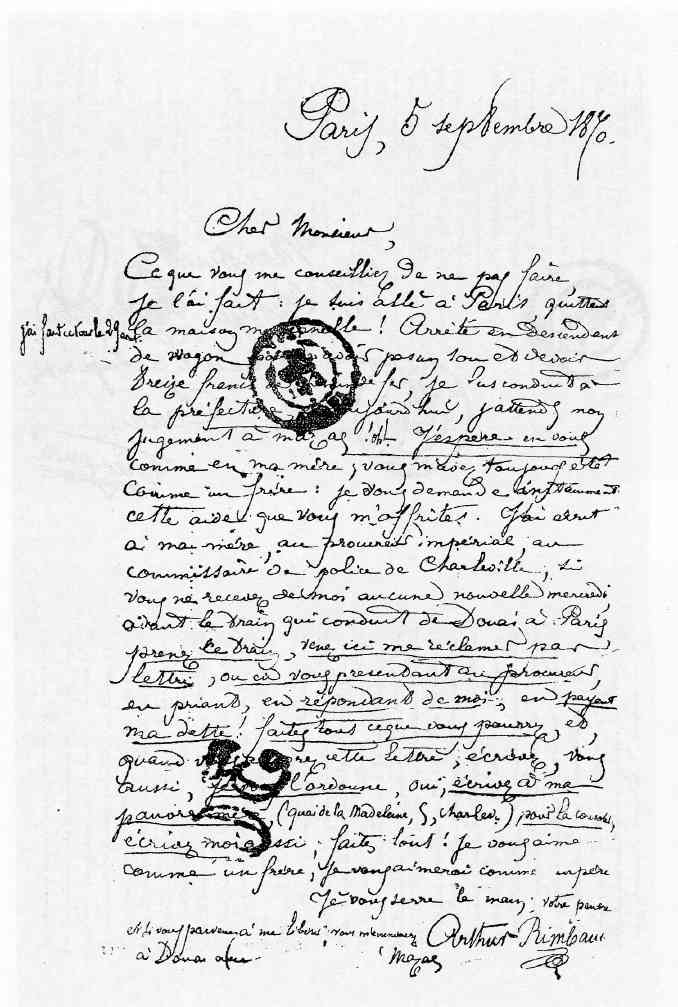 Paris, 5 septembre 1870.
Cher Monsieur,
Ce que vous me conseilliez de ne pas faire,
je l'ai fait : je suis allé à Paris, quittant
la maison maternelle ! Arrêté en descendant
j'ai fait ce tour le 29 août
de wagon pour n'avoir pas un sou et devoir
treize francs de chemin de fer, je fus conduit à
la préfecture, et aujourd'hui, j'attends mon
jugement à Mazas ! oh! J'espère en vous
comme en ma mère ; vous m'avez toujours été
comme un frère : je vous demande instamment
cette aide que vous m'offrîtes. J'ai écrit
à ma mère, au procureur impérial, au
commissaire de police de Charleville ; si
vous ne recevez de moi aucune nouvelle mercredi,
avant le train qui conduit de Douai à Paris,
prenez ce train, venez ici me réclamer par
lettre, ou en vous présentant au procureur,
en priant, en répondant de moi, en payant
ma dette ! faites tout ce que vous pourrez, et,
quand vous cette lettre, écrivez, vous
aussi, je vous l'ordonne, oui, écrivez à ma
pauvre mère (quai de la Madeleine, 5, Charlev.) pour la consoler,
écrivez moi aussi ; faites tout ! Je vous aime
comme un frère, je vous aimerai comme un père
Je vous serre la main ; votre pauvre
Arthur Rimbaud
et si vous parvenez à me libérer, vous m'emmènerez
à Douai avec
à Mazas